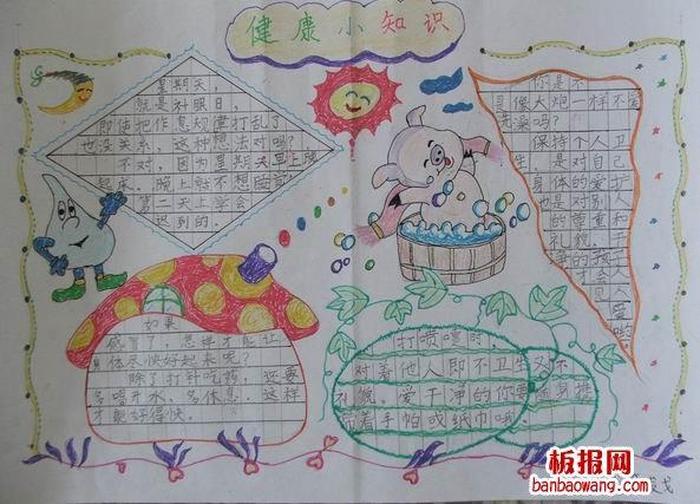 健康小知识
星期天，
就是补眠日，
即使把作息规律打乱了
也没关系，这种想法对吗？
不对，因为星期天早上晚
起床，晚上就不想睡前
第二天上学会
迟到的。
你是不
是像大炮一样不爱
洗澡吗？
保持个人卫
生，是对自己
身体的爱护
也是对别人
的尊重和
礼貌，
净的孩
才会人
见人
爱
哟
如果
感冒了，怎样才能让
体尽快好起来呢？
除了打针吃药，还要
多喝开水，多休息，这样
才能好得快。
打喷嚏时，
对着他人即不卫生又不
礼貌，爱干净的你要随身携
带着手帕或纸巾哦
板报网
banbaowang.com